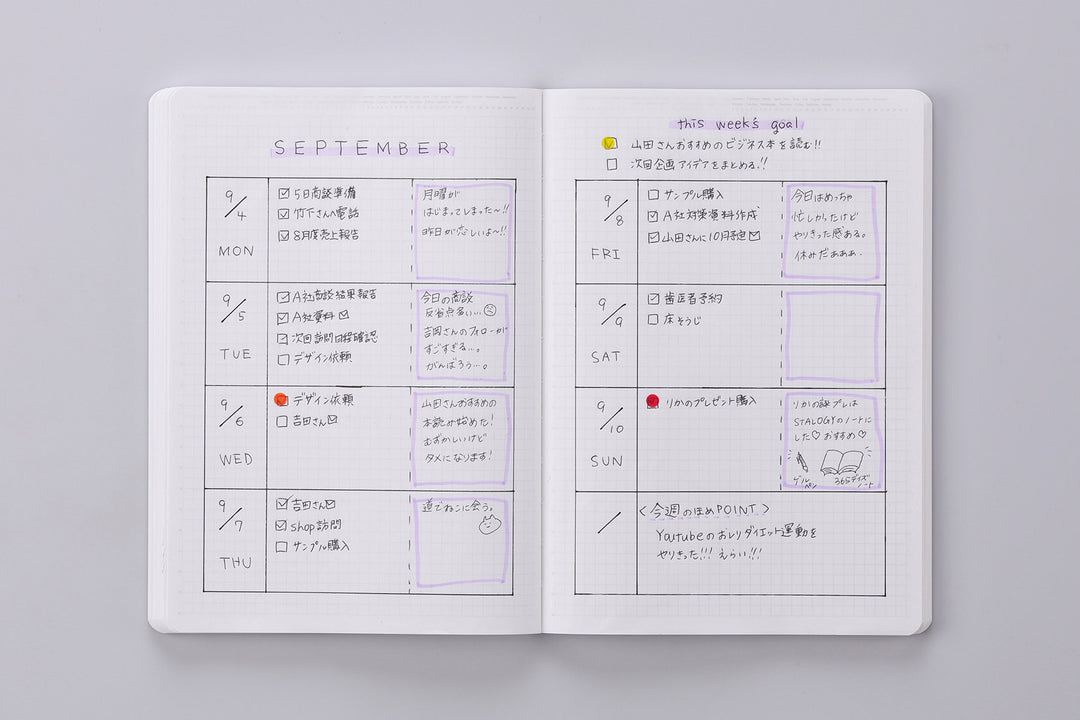 SEPTEMBER
9/4
MON
5日商談準備
竹下さんへ電話
8月度売上報告
月曜が
はじまってしまった〜!!
昨日が恋しいよ〜!!
9/5
TUE
A社商談結果報告
A社資料
次回訪問日程確認
デザイン依頼
今日の商談
反省点多い…
吉岡さんのフォローが
すごすぎる…。
がんばろう…。
9/6
WED
デザイン依頼
吉田さん
山田さんおすすめの
本読み始めた!
むずかしいけど
タメになります!
9/7
THU
吉田さん
shop訪問
サンプル購入
道でねこに会う。
this week's goal
山田さんおすすめのビジネス本を読む!!
次回企画アイデアをまとめる!!
9/8
FRI
サンプル購入
A社対策資料作成
山田さんに10月予定
今日はめっちゃ
忙しかったけど
やりきった感ある。
休みだぁぁぁ.
9/9
SAT
歯医者予約
床そうじ
9/10
SUN
りかのプレゼント購入
りかの誕プレは
STALOGYのノートに
した♡ おすすめ♡
ゲルペン
365デイズノート
/
<今週のほめPOINT.>
Youtubeのおしりダイエット運動を
やりきった!!! えらい!!!